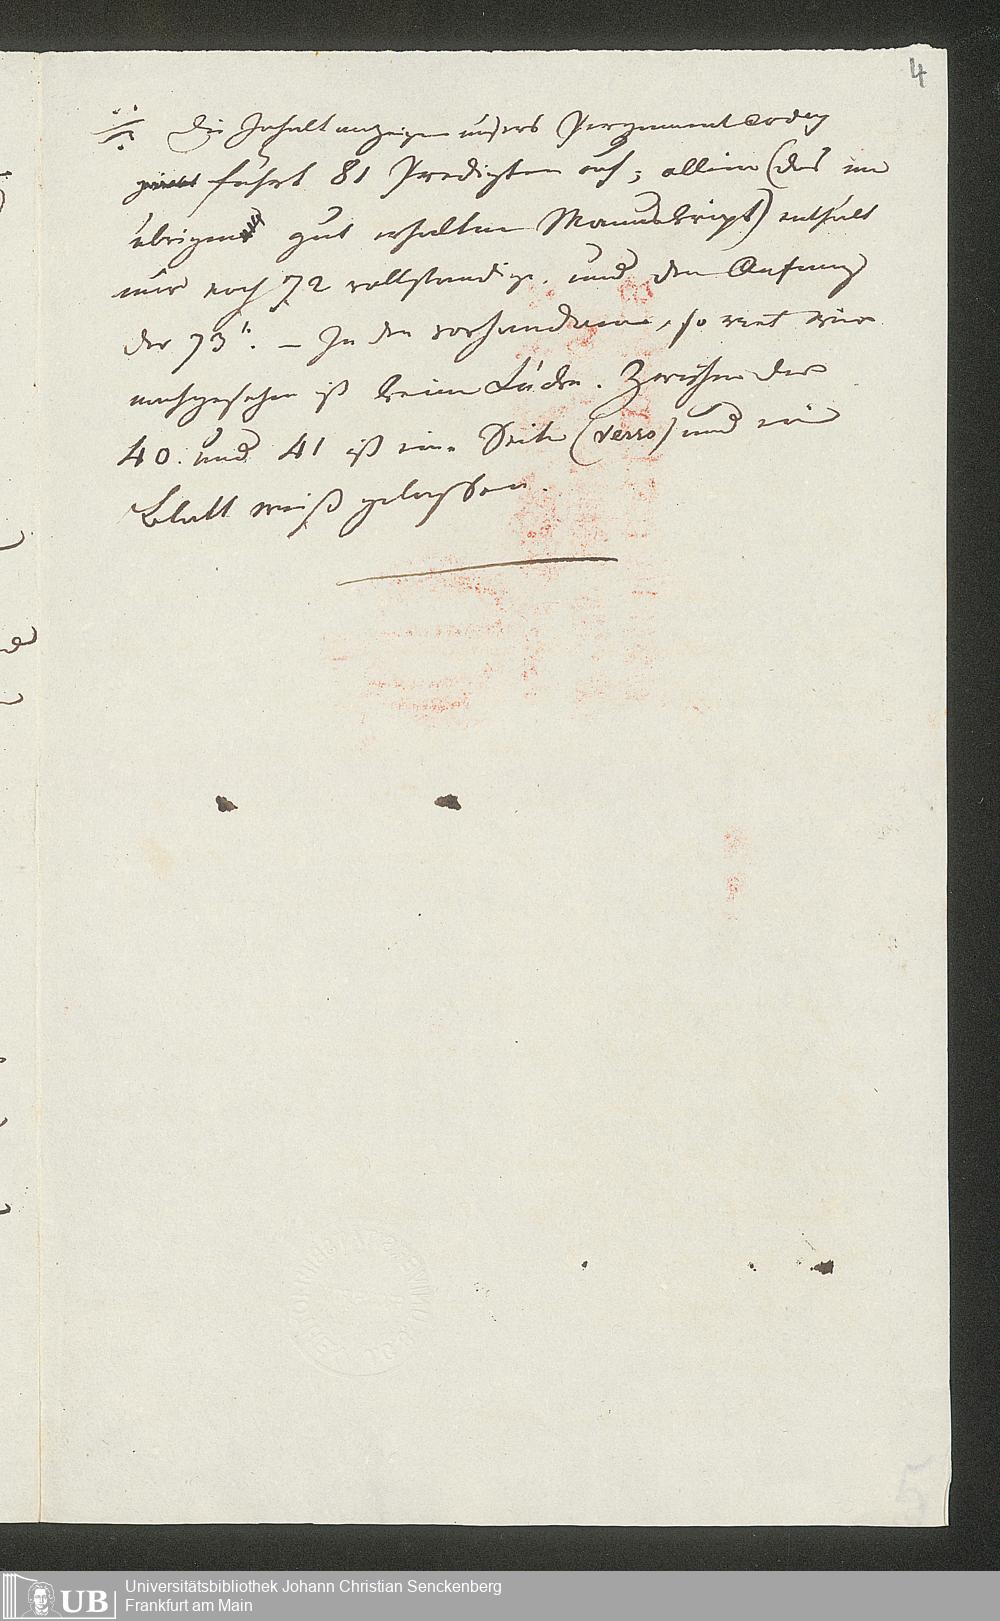 4
Die Inhaltanzeige unsers Pergamentcodex
führt 81 Predigten auf; allein (das im
übrigen gut erhaltene Manuskript) enthält
nur noch 72 vollständige und den Anfang
der 73t. – In den vorhandenen, so weit wir
nachgesehen ist keine Lücke. Zwischen der
40. und 41 ist eine Seite (verso) und ein
Blatt weiß gelassen.
5
UB
Universitätsbibliothek Johann Christian Senckenberg
Frankfurt am Main